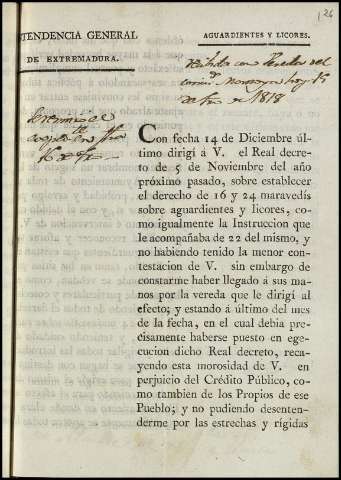 126
TENDENCIA GENERAL
DE EXTREMADURA.
AGUARDIENTES Y LICORES.
de 1818
Con fecha 14 de Diciembre úl-
timo dirigí á V. el Real decre-
to de 5 de Noviembre del año
próximo pasado, sobre establecer
el derecho de 16 y 24 maravedís
sobre aguardientes y licores, co-
mo igualmente la Instruccion que
le acompañaba de 22 del mismo, y
no habiendo tenido la menor con-
testacion de V. sin embargo de
constarme haber llegado á sus ma-
nos por la vereda que le dirigí al
efecto; y estando á último del mes
de la fecha, en el cual debia pre-
cisamente haberse puesto en ege-
cucion dicho Real decreto, reca-
yendo esta morosidad de V. en
perjuicio del Crédito Público, co-
mo tambien de los Propios de ese
Pueblo; y no pudiendo desenten-
derme por las estrechas y rígidas